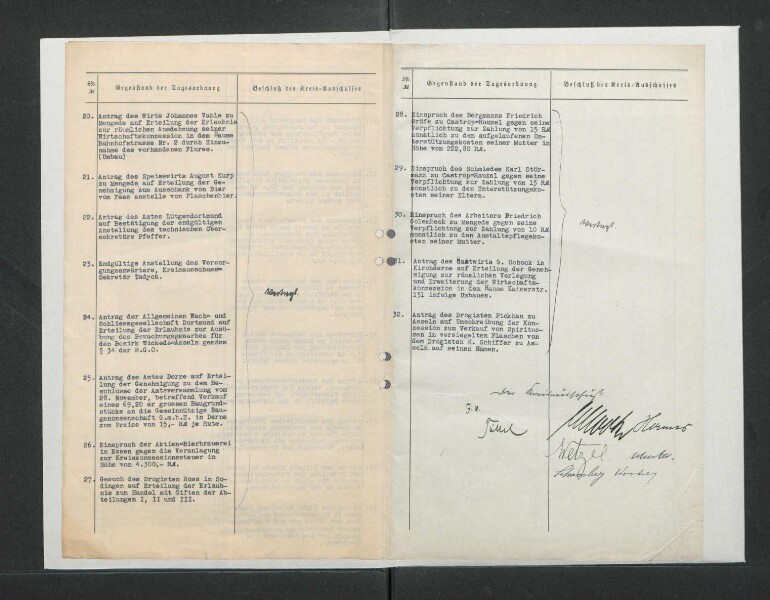 Gegenstand der Tagesordnung
Beschluß des Kreis-Ausschusses
20. Antrag des Wirts Johannes Vahle zu
Mengede auf Erteilung der Erlaubnis
zur räumlichen Ausdehnung seiner
Wirtschaftskonzession in dem Hause
Bahnhofstrasse Nr. 2 durch Hinzu-
nahme des vorhandenen Flures.
(Umbau)
21. Antrag des Speisewirts August Kurp
zu Mengede auf Erteilung der Ge-
nehmigung zum Ausschank von Bier
vom Fass anstelle von Flaschenbier.
22. Antrag des Amtes Lütgendortmund
auf Bestätigung der endgültigen
Anstellung des technischen Ober-
sekretärs Pfeffer.
23. Endgültige Anstellung des Versor-
gungsanwärters, Kreisausschuss-
Sekretär Tadych.
vertagt
24. Antrag der Allgemeinen Wach- und
Schliessgesellschaft Dortmund auf
Erteilung der Erlaubnis zur Ausü-
bung des Bewachungsgewerbes für
den Bezirk Wickede-Asseln gemäss
§ 34 der R.G.O.
25. Antrag des Amtes Derne auf Ertei-
lung der Genehmigung zu dem Be-
schlusse der Amtsversammlung vom
28. November, betreffend Verkauf
eines 69,20 ar grossen Baugrund-
stücks an die Gemeinnützige Bau-
genossenschaft G.m.b.H. in Derne
zum Preise von 15,- RM je Rute.
26. Einspruch der Aktien-Bierbrauerei
in Essen gegen die Veranlagung
zur Kreiskonzessionssteuer in
Höhe von 4.300,- RM.
27. Gesuch des Drogisten Ross in So-
dingen auf Erteilung der Erlaub-
nis zum Handel mit Giften der Ab-
teilungen I, II und III.
Gegenstand der Tagesordnung
Beschluß des Kreis-Ausschusses
28. Einspruch des Bergmanns Friedrich
Gräfe zu Castrop-Rauxel gegen seine
Verpflichtung zur Zahlung von 15 RM
monatlich zu den aufgelaufenen Un-
terstützungskosten seiner Mutter in
Höhe von 222,80 RM.
29. Einspruch des Schmiedes Karl Stör-
mann zu Castrop-Rauxel gegen seine
Verpflichtung zur Zahlung von 15 RM
monatlich zu den Unterstützungsko-
sten seiner Eltern.
30. Einspruch des Arbeiters Friedrich
zu Mengede gegen seine
Verpflichtung zur Zahlung von 10 RM
monatlich zu den Anstaltspflegeko-
sten seiner Mutter.
vertagt
31. Antrag des Gastwirts G. Schock in
Kirchderne auf Erteilung der Geneh-
migung zur räumlichen Verlegung
und Erweiterung der Wirtschafts-
konzession in dem Hause Kaiserstr.
131 infolge Umbaues.
32. Antrag des Drogisten Pickhan zu
Asseln auf Umschreibung der Kon-
zession zum Verkauf von Spirituo-
sen in versiegelten Flaschen von
dem Drogisten H. Schiffer zu As-
seln auf seinen Namen.
Der Kreisausschuß
Wetzel